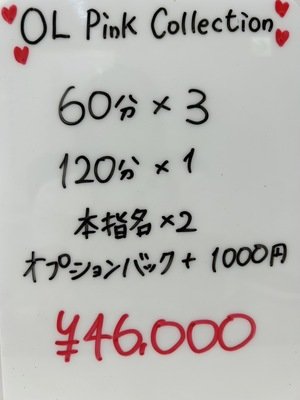 OL Pink Collection
60分×3
120分×1
本指名×2
オプションバック+1000円
¥46,000